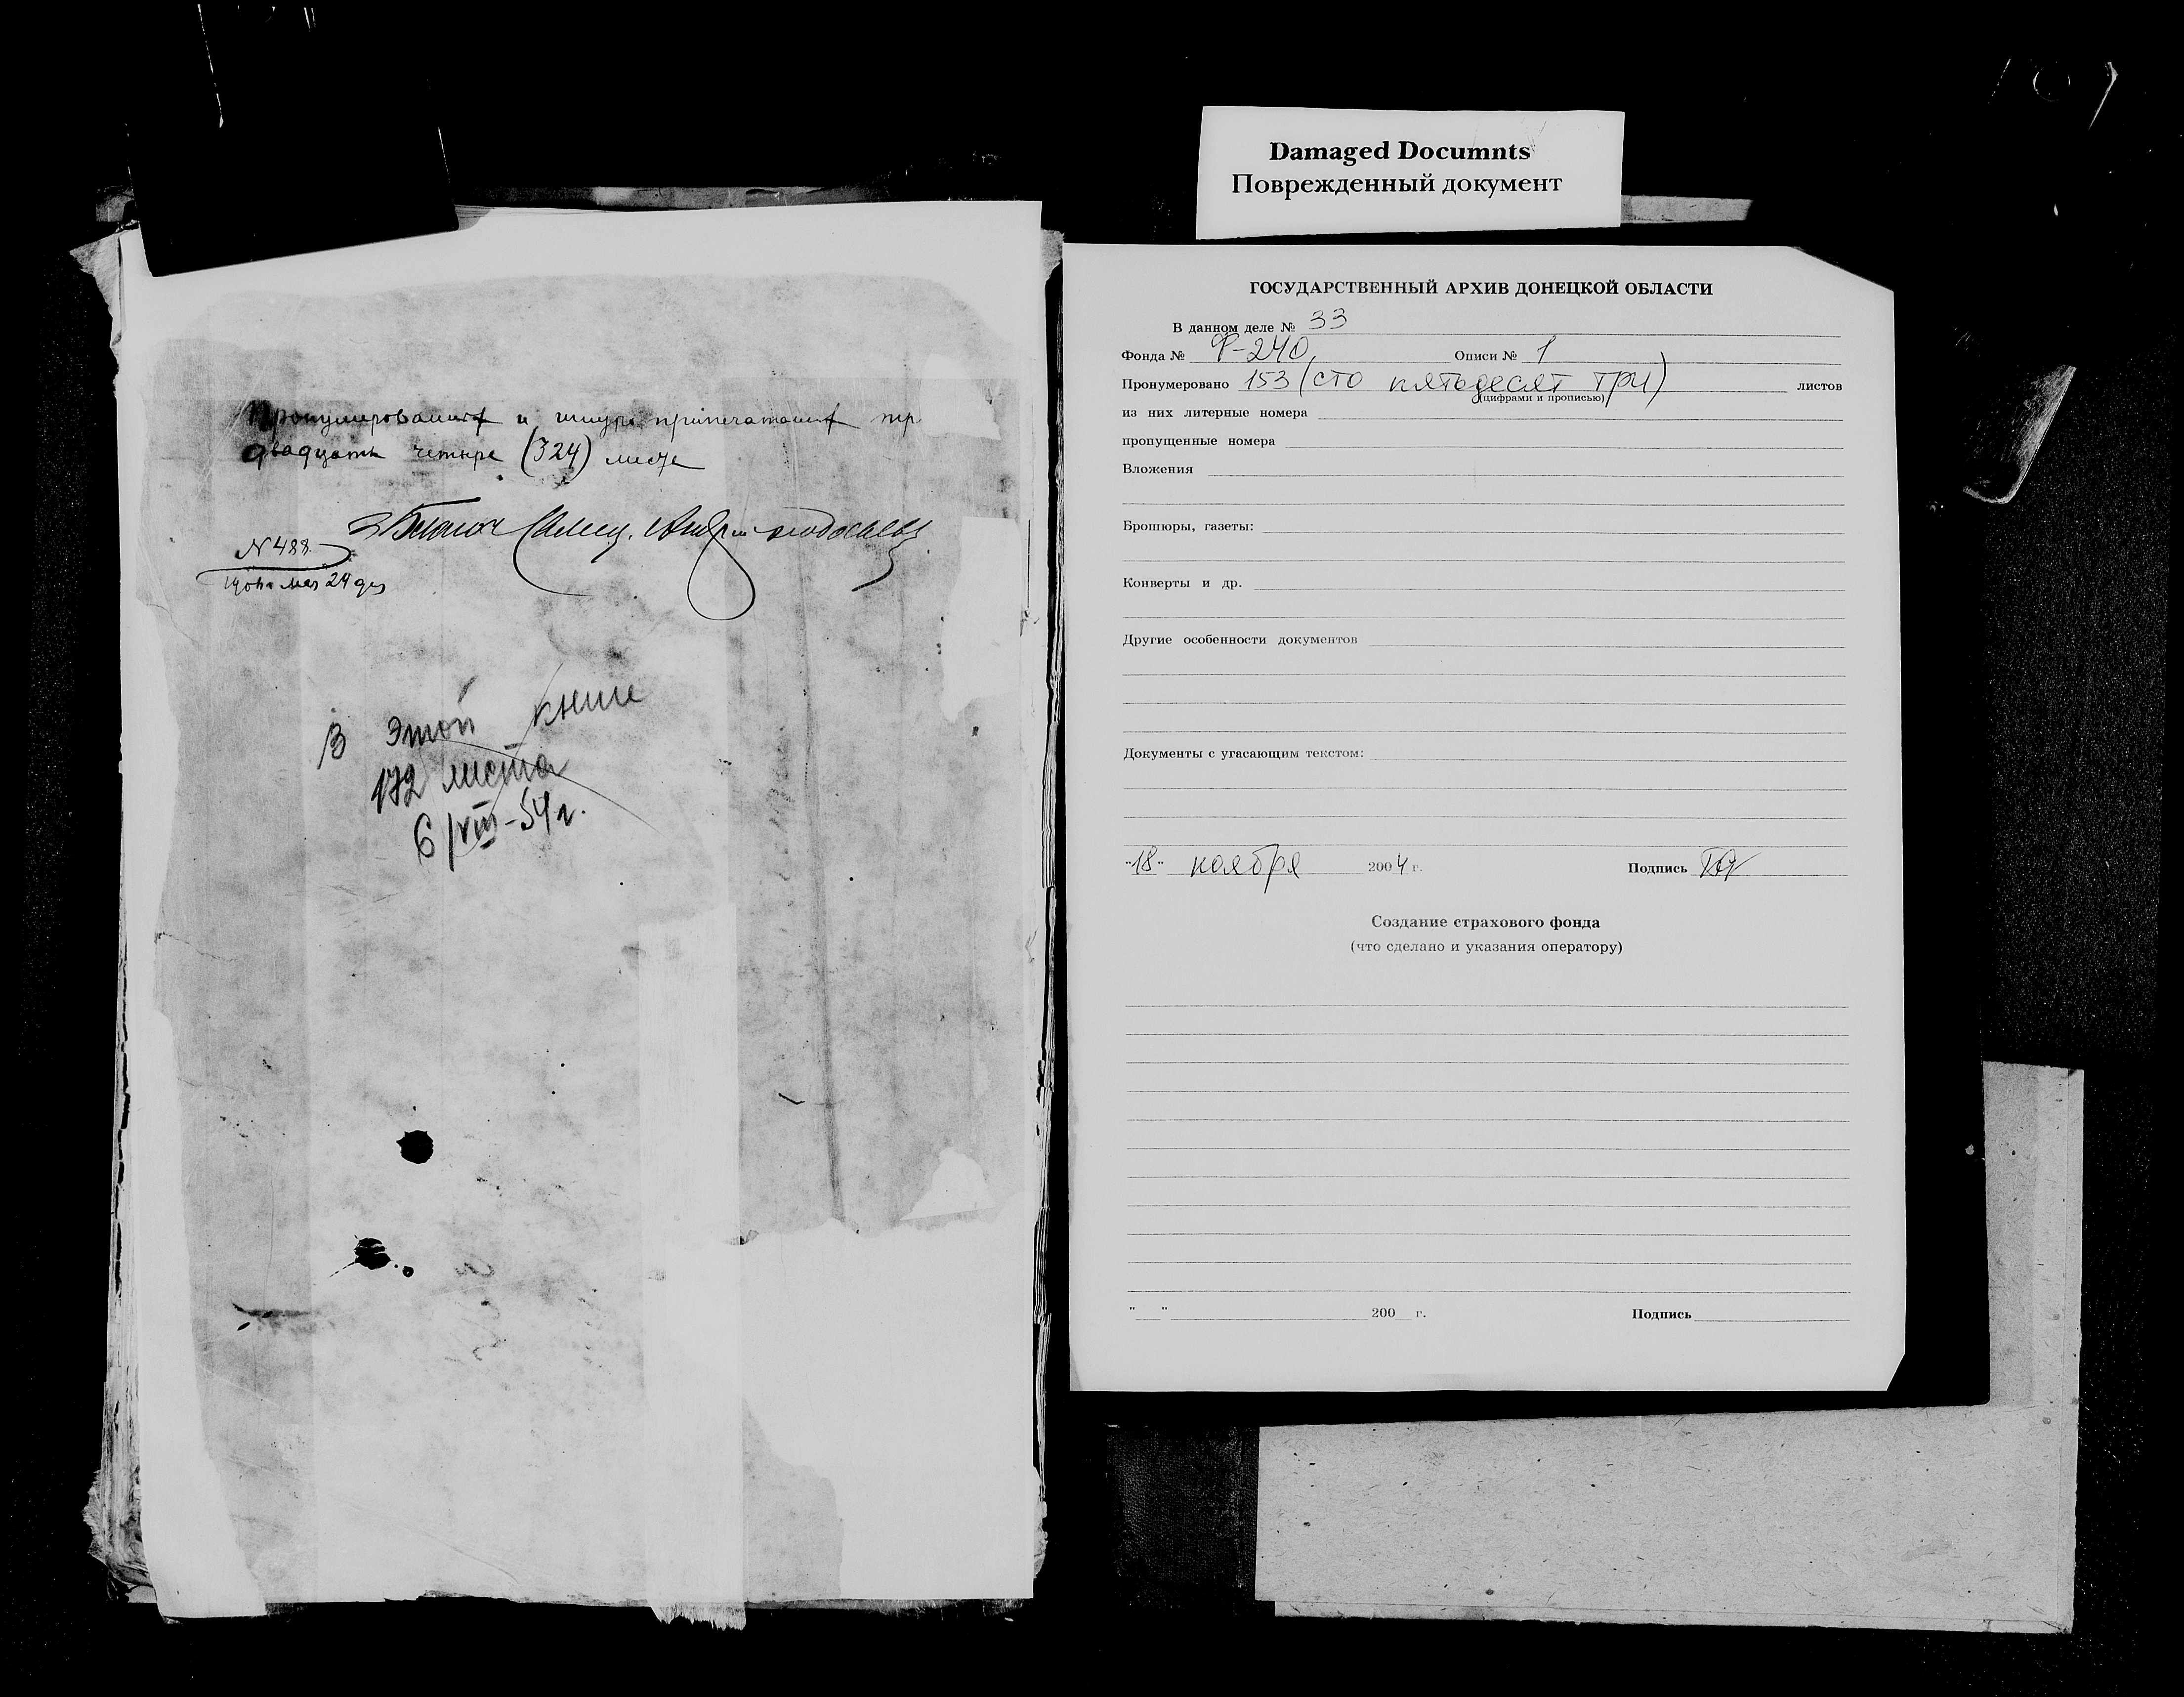 Damaged Documnts
Поврежденный документ
двадцать четыре (324) листа
N 488.
24
В этой книге
172 листа
6/VIII-54 г.
ГОСУДАРСТВЕННЫЙ АРХИВ ДОНЕЦКОЙ ОБЛАСТИ
В данном деле № 33
Фонда № Ф-240 Описи № 1
Пронумеровано 153 (сто пятьдесят три) листов
(цифрами и прописью)
из них литерные номера
пропущенные номера
Вложения
Брошюры, газеты:
Конверты и др.
Другие особенности документов
Документы с угасающим текстом:
"18" ноября 2004 г. Подпись
Создание страхового фонда
(что сделано и указания оператору)
" " 200 г. Подпись